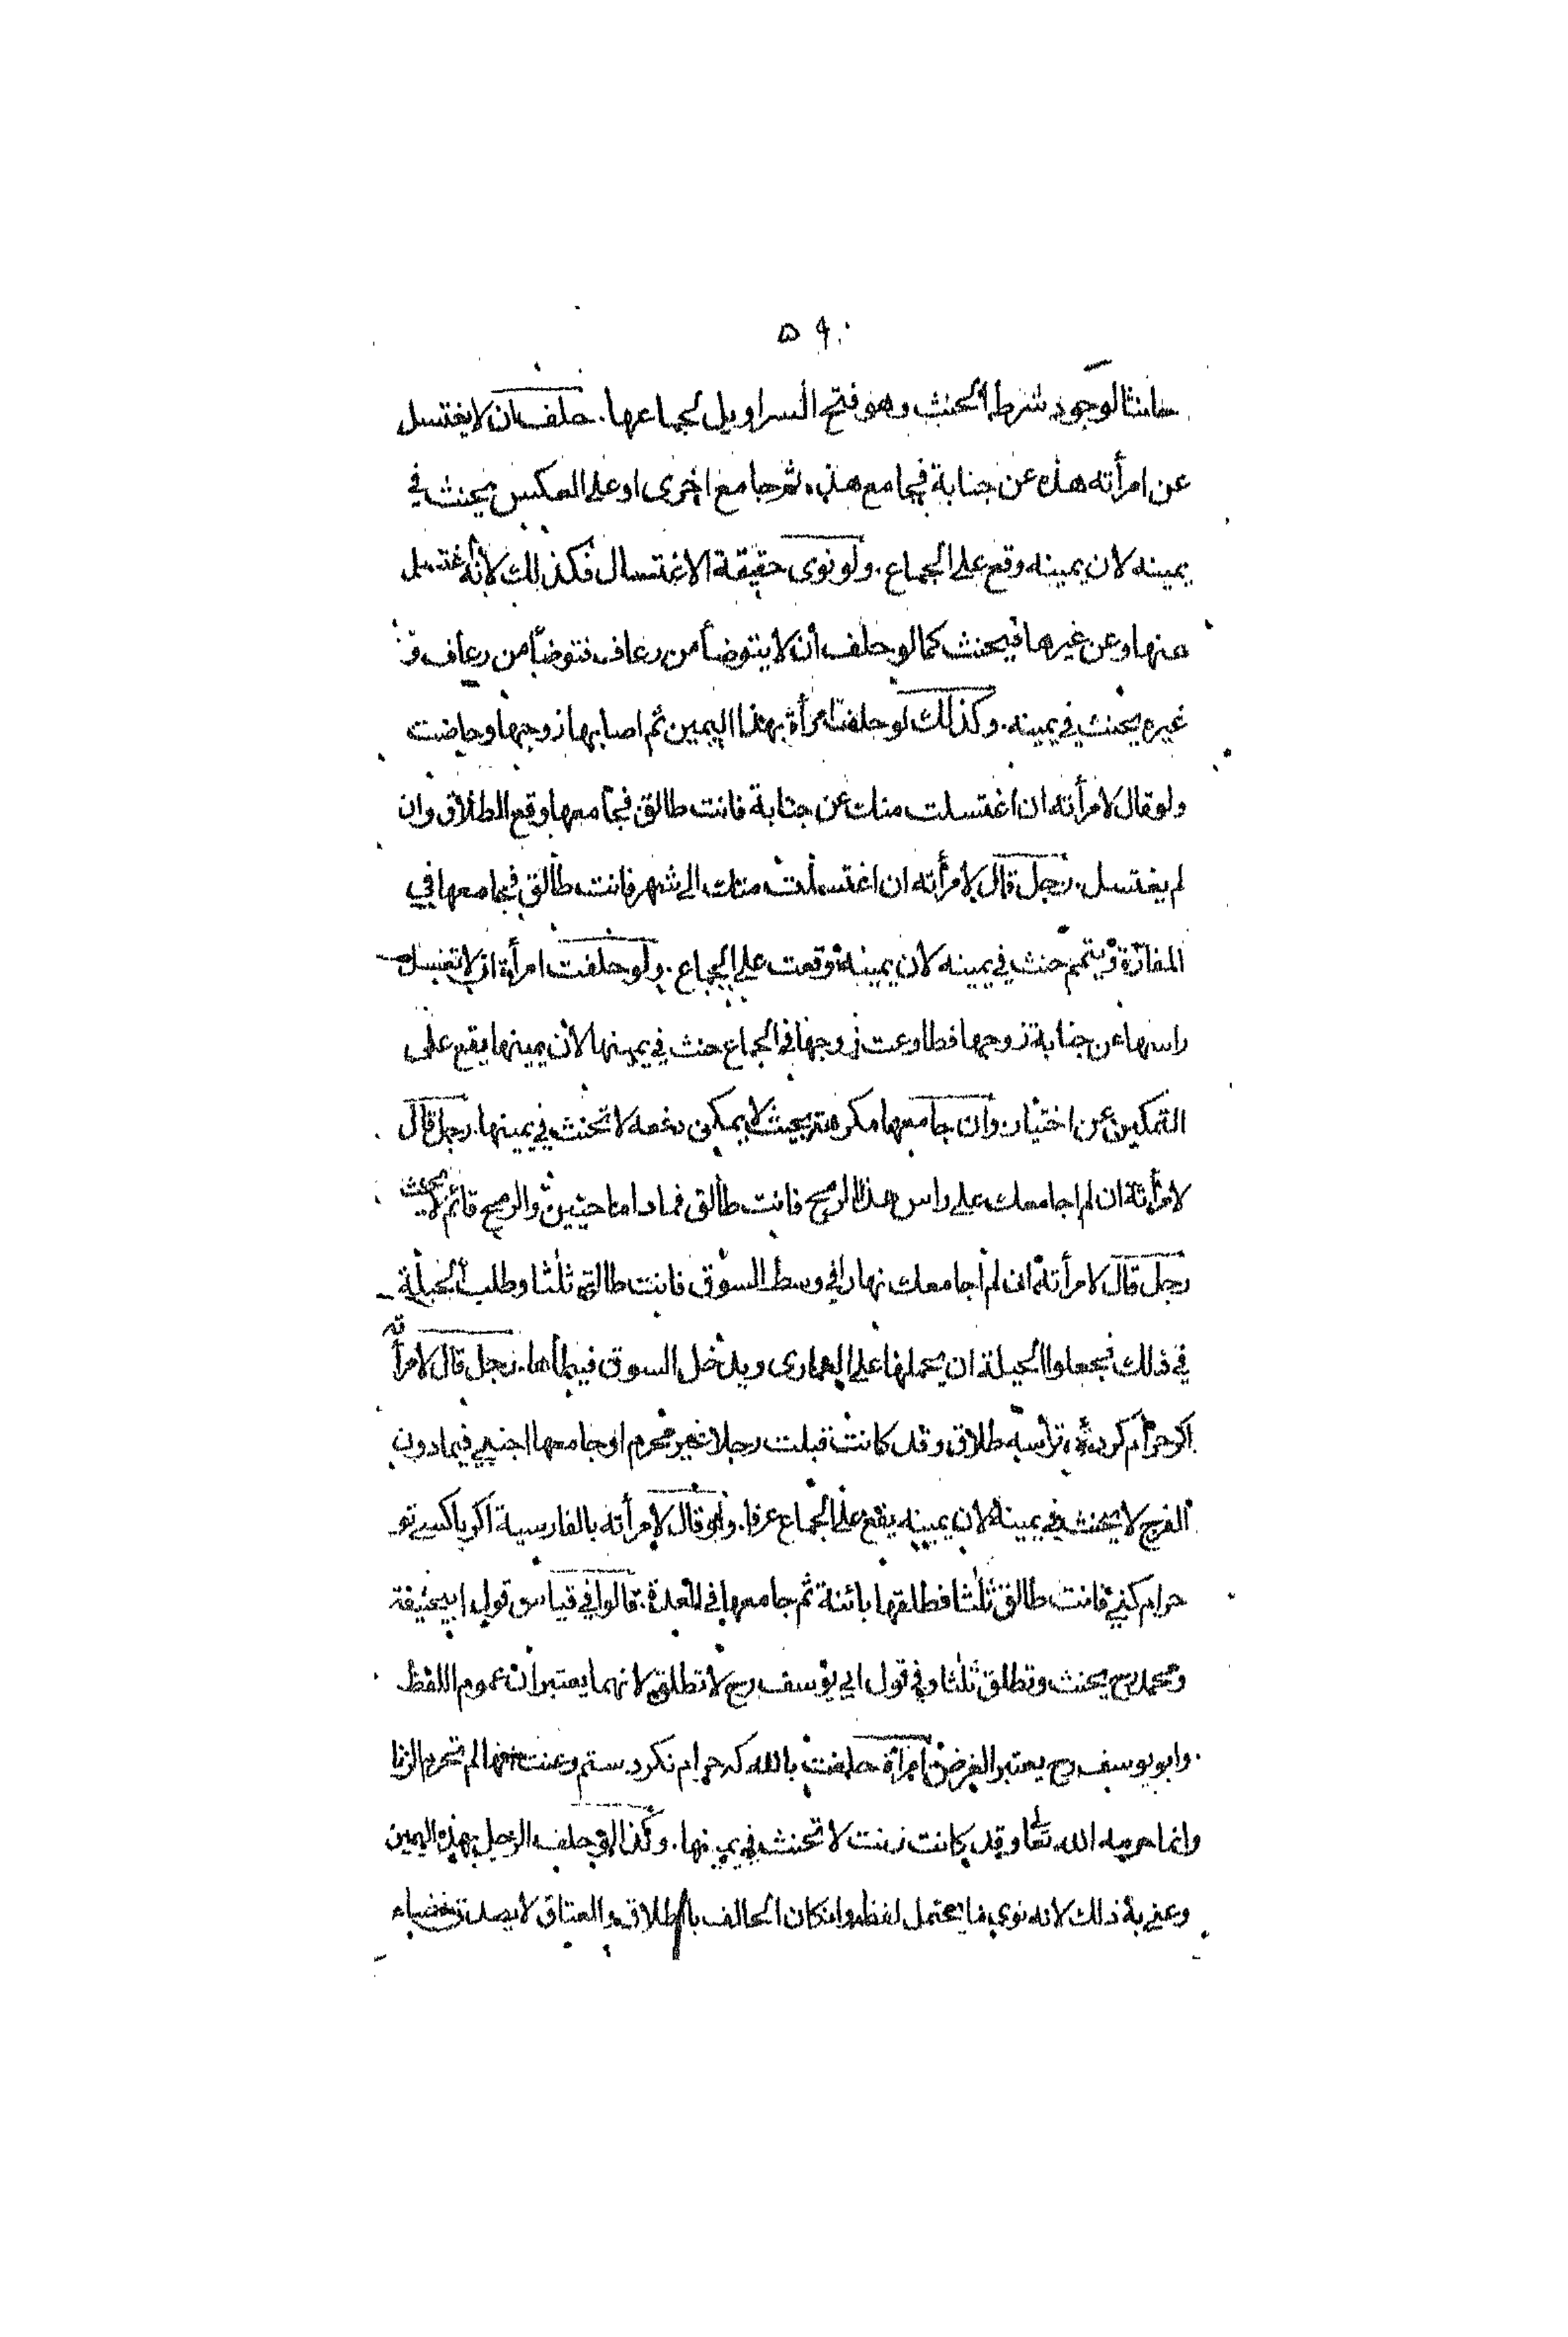 ٥٩
حانثا لوجود شرط الحنث وهو فتح السراويل لجماعها. حلف ان لا يغتسل
عن امرأته هذه عن جنابة فجامع هذه ثم جامع اخرى او على العكس يحنث في
يمينه لان يمينه وقع على الجماع. ولو نوى حقيقة الاغتسال فكذلك لانه اغتسل
عنها وعن غيرها فيحنث كما لو حلف أن لا يتوضأ من رعاف فتوضأ من رعاف و
غيره يحنث في يمينه. وكذلك لو حلفت امرأة بهذا اليمين ثم اصابها زوجها وحاضت
ولو قال لامرأته ان اغتسلت منك عن جنابة فانت طالق فجامعها وقع الطلاق وان
لم يغتسل. رجل قال لامرأته ان اغتسلت منك الى شهر فانت طالق فجامعها في
المفازة وتيمم حنث في يمينه لان يمينه وقعت على الجماع. ولو حلفت امرأة ان لا تغسل
راسها عن جنابة زوجها فطاوعت زوجها في الجماع حنث في يمينها لان يمينها يقع على
التمكين عن اختيار وان جامعها مكرهة بحيث لا يمكن دفعه لا تحنث في يمينها. رجل قال
لامرأته ان لم اجامعك على راس هذا الرمح فانت طالق فما داما حيين والرمح قائم لا يحنث
رجل قال لامرأته ان لم اجامعك نهارا في وسط السوق فانت طالق ثلثا وطلب الحيلة
في ذلك فجعلوا الحيلة ان يحملها على العمارى ويدخل السوق فيطأها. رجل قال لامرأته
اكر حرام كرده ترا سه طلاق وقد كانت قبلت رجلا غير محرم او جامعها اجنبي فيما دون
الفرج لا يحنث في يمينه لان يمينه يقع على الجماع عرفا. ولو قال لامرأته بالفارسية اكر باكسي تو
حرام كني فانت طالق ثلثا فطلقها بائنة ثم جامعها في العدة. قالوا في قياس قول ابيحنيفة
ومحمد رح يحنث وتطلق ثلثا وفي قول ابي يوسف رح لا تطلق لانهما يعتبران عموم اللفظ
وابو يوسف رح يعتبر الغرض امرأة حلفت بالله كه حرام نكرد ستم وعنت انها لم تحرم الزنا
وانما حرمه الله تعا وقد كانت زنت لا تحنث في يمينها. وكذا لو حلف الرجل بهذه اليمين
وعني به ذلك لانه نوى ما يحتمل لفظه وان كان الحالف بالطلاق والعتاق لا يصدق قضاء